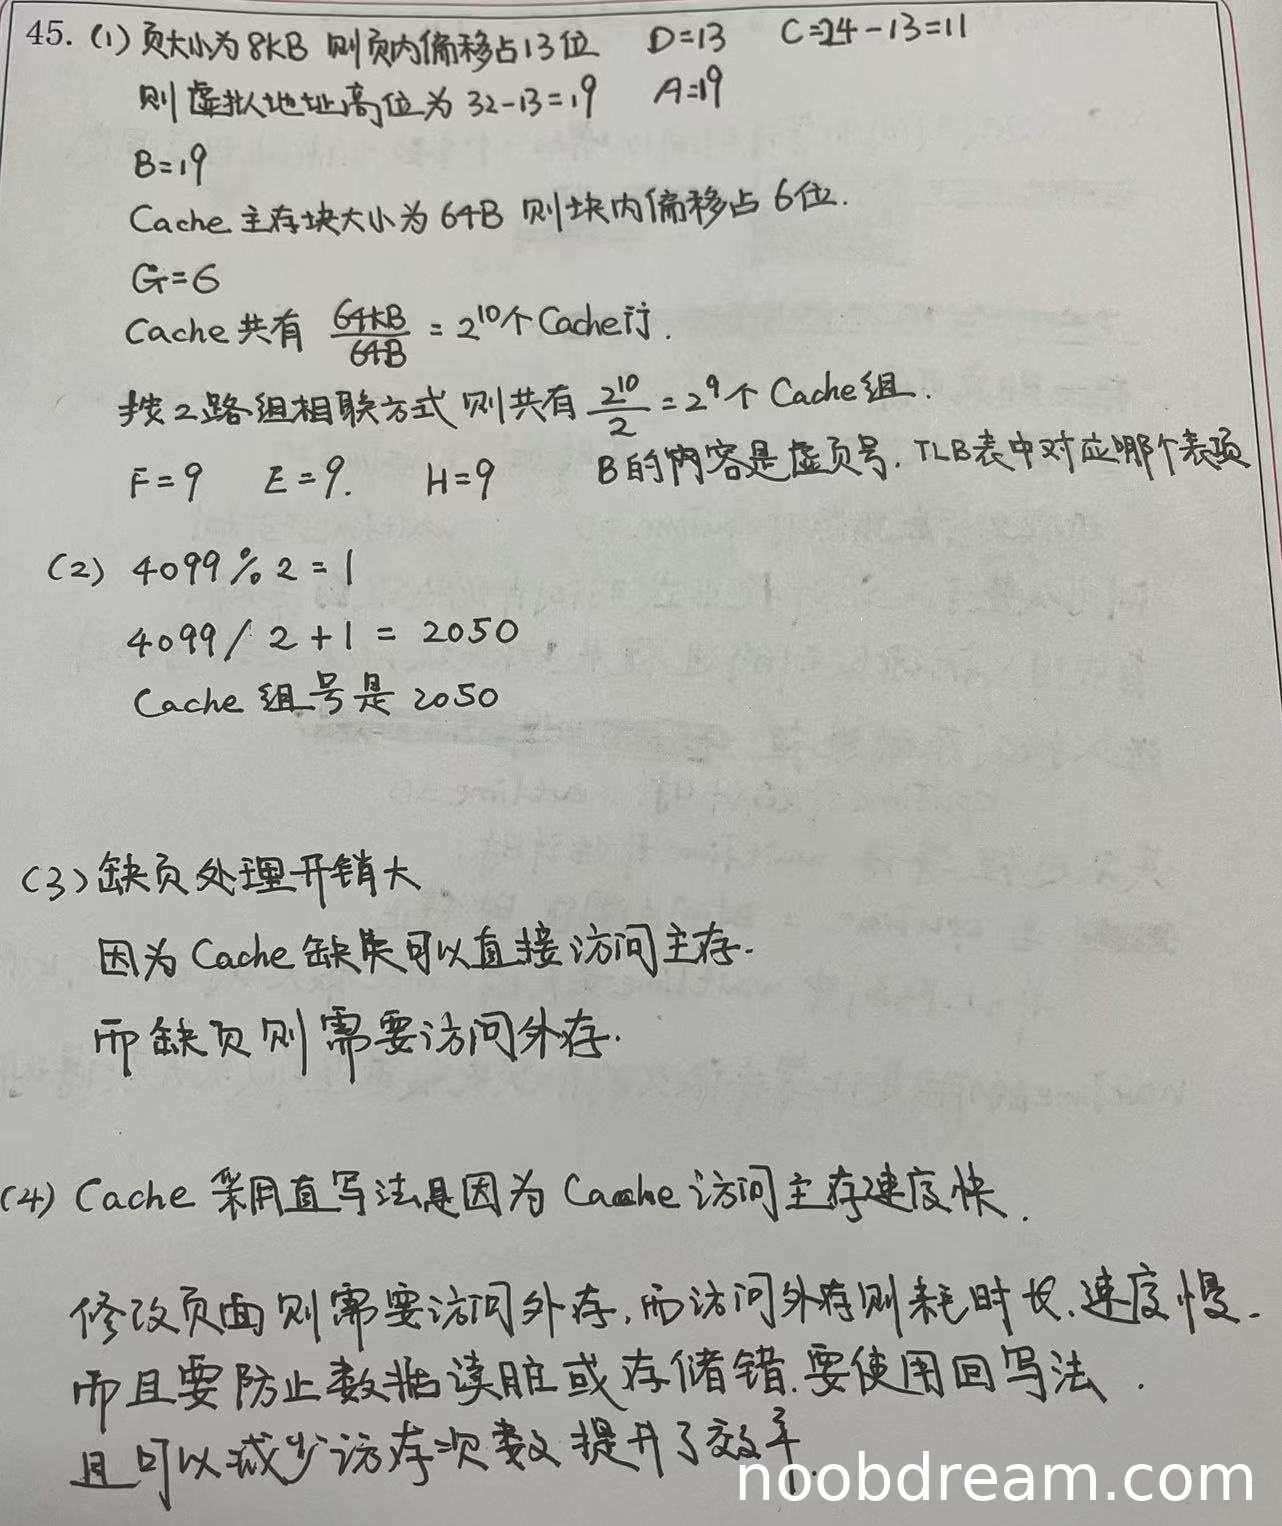 45. (1) 页大小为8KB 则页内偏移占13位 D=13 C=24-13=11
则虚拟地址高位为 32-13=19 A=19
B=19
Cache 主存块大小为 64B 则块内偏移占 6位.
G=6
Cache 共有 64KB/64B = 2^10个Cache行.
按2路组相联方式 则共有 2^10/2 = 2^9个 Cache组.
F=9 E=9. H=9 B的内容是虚页号. TLB表中对应哪个表项
(2) 4099 % 2 = 1
4099 / 2 + 1 = 2050
Cache 组号是 2050
(3) 缺页处理开销大
因为 Cache 缺失可以直接访问主存.
而缺页则需要访问外存.
(4) Cache 采用直写法是因为 Cache 访问主存速度快.
修改页面则需要访问外存,而访问外存则耗时长.速度慢.
而且要防止数据读脏或存储错.要使用回写法.
且可以减少访存次数提升了效率.
noobdream.com